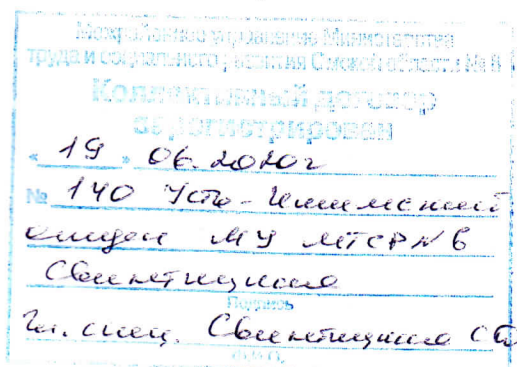 Межрайонное управление Министерства
труда и социального развития Омской области № 6
Коллективный договор
зарегистрирован
« 19 » 06.2020г
№ 140 Усть-Ишимский
отдел МУ МТСР № 6
Подпись
Гл. спец.
Ф.И.О.